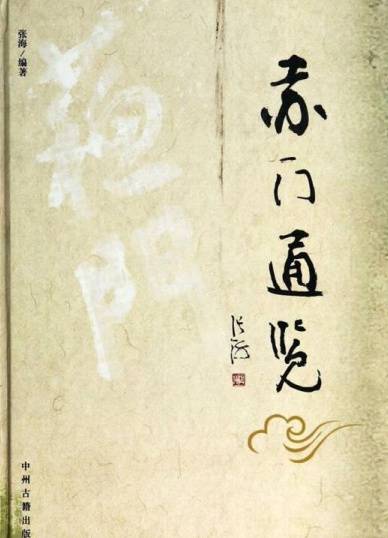 张海/编著
蘇門
苏门通览
张海
中州古籍出版